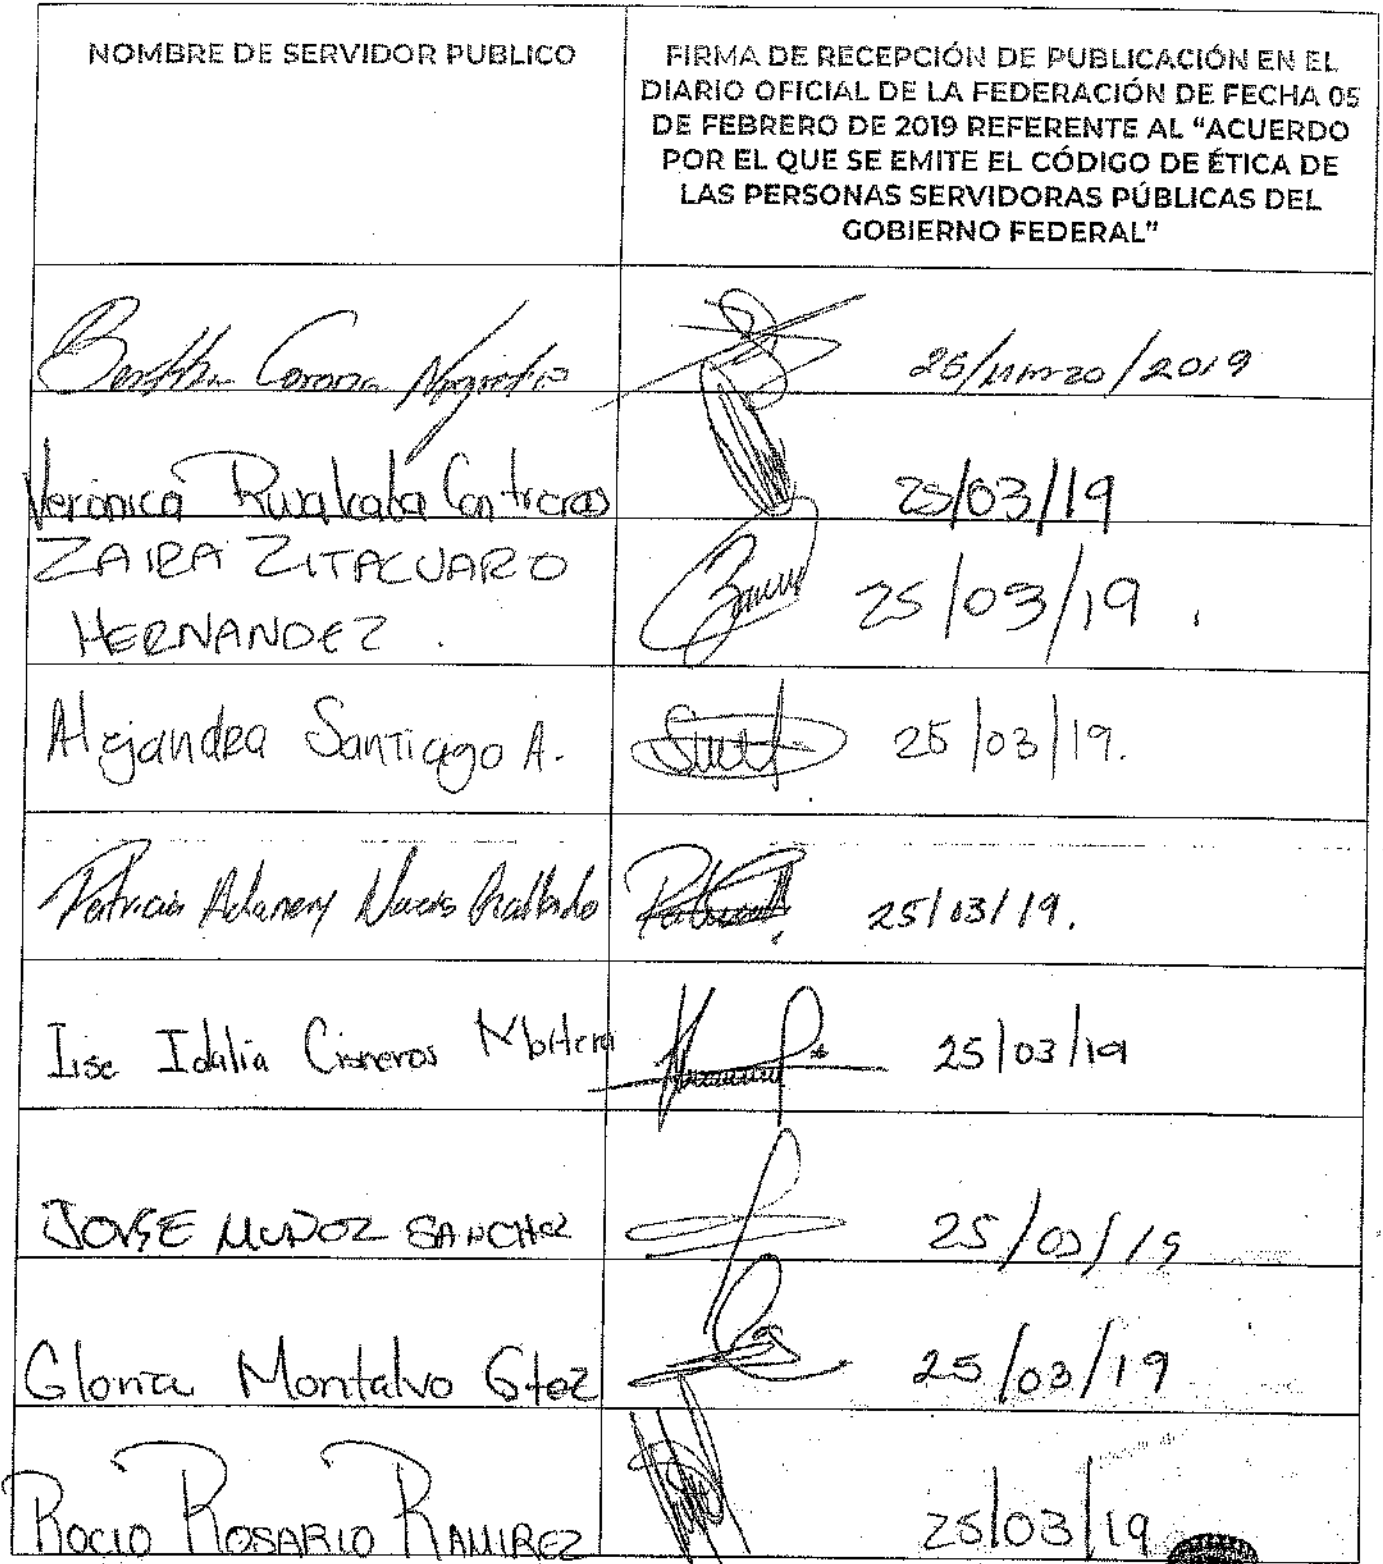 NOMBRE DE SERVIDOR PUBLICO
FIRMA DE RECEPCIÓN DE PUBLICACIÓN EN EL
DIARIO OFICIAL DE LA FEDERACIÓN DE FECHA 05
DE FEBRERO DE 2019 REFERENTE AL "ACUERDO
POR EL QUE SE EMITE EL CÓDIGO DE ÉTICA DE
LAS PERSONAS SERVIDORAS PÚBLICAS DEL
GOBIERNO FEDERAL"
Bertha Corona 25/marzo/2019
Verónica Ruvalcaba Contreras 25/03/19
ZAIRA ZITACUARO
HERNANDEZ. 25/03/19.
Alejandra Santiago A. 25/03/19.
Patricia 25/03/19.
Idalia Cisneros 25/03/19
JORGE MUÑOZ SANCHEZ 25/03/19
Gloria Montalvo Gtez 25/03/19
ROCIO ROSARIO RAMIREZ 25/03/19